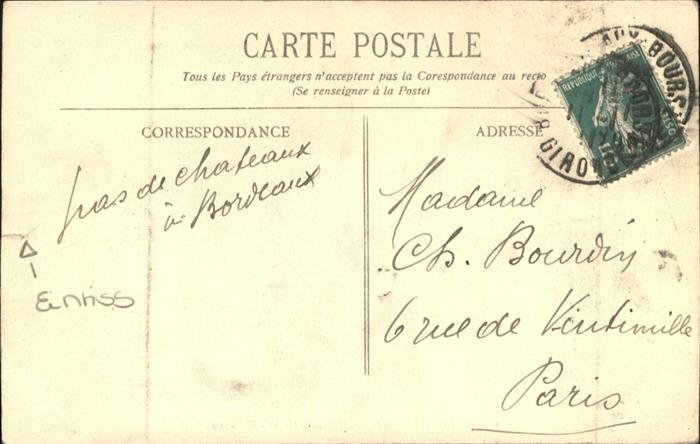 CARTE POSTALE
Tous les Pays étrangers n'acceptent pas la Corespondance au recto
(Se renseigner à la Poste)
CORRESPONDANCE
ADRESSE
pas de chateaux
à Bordeaux
Madame
Ch. Bourdin
6 rue de Vintimille
Paris
BOURSE
GIRONDE
REPUBLIQUE